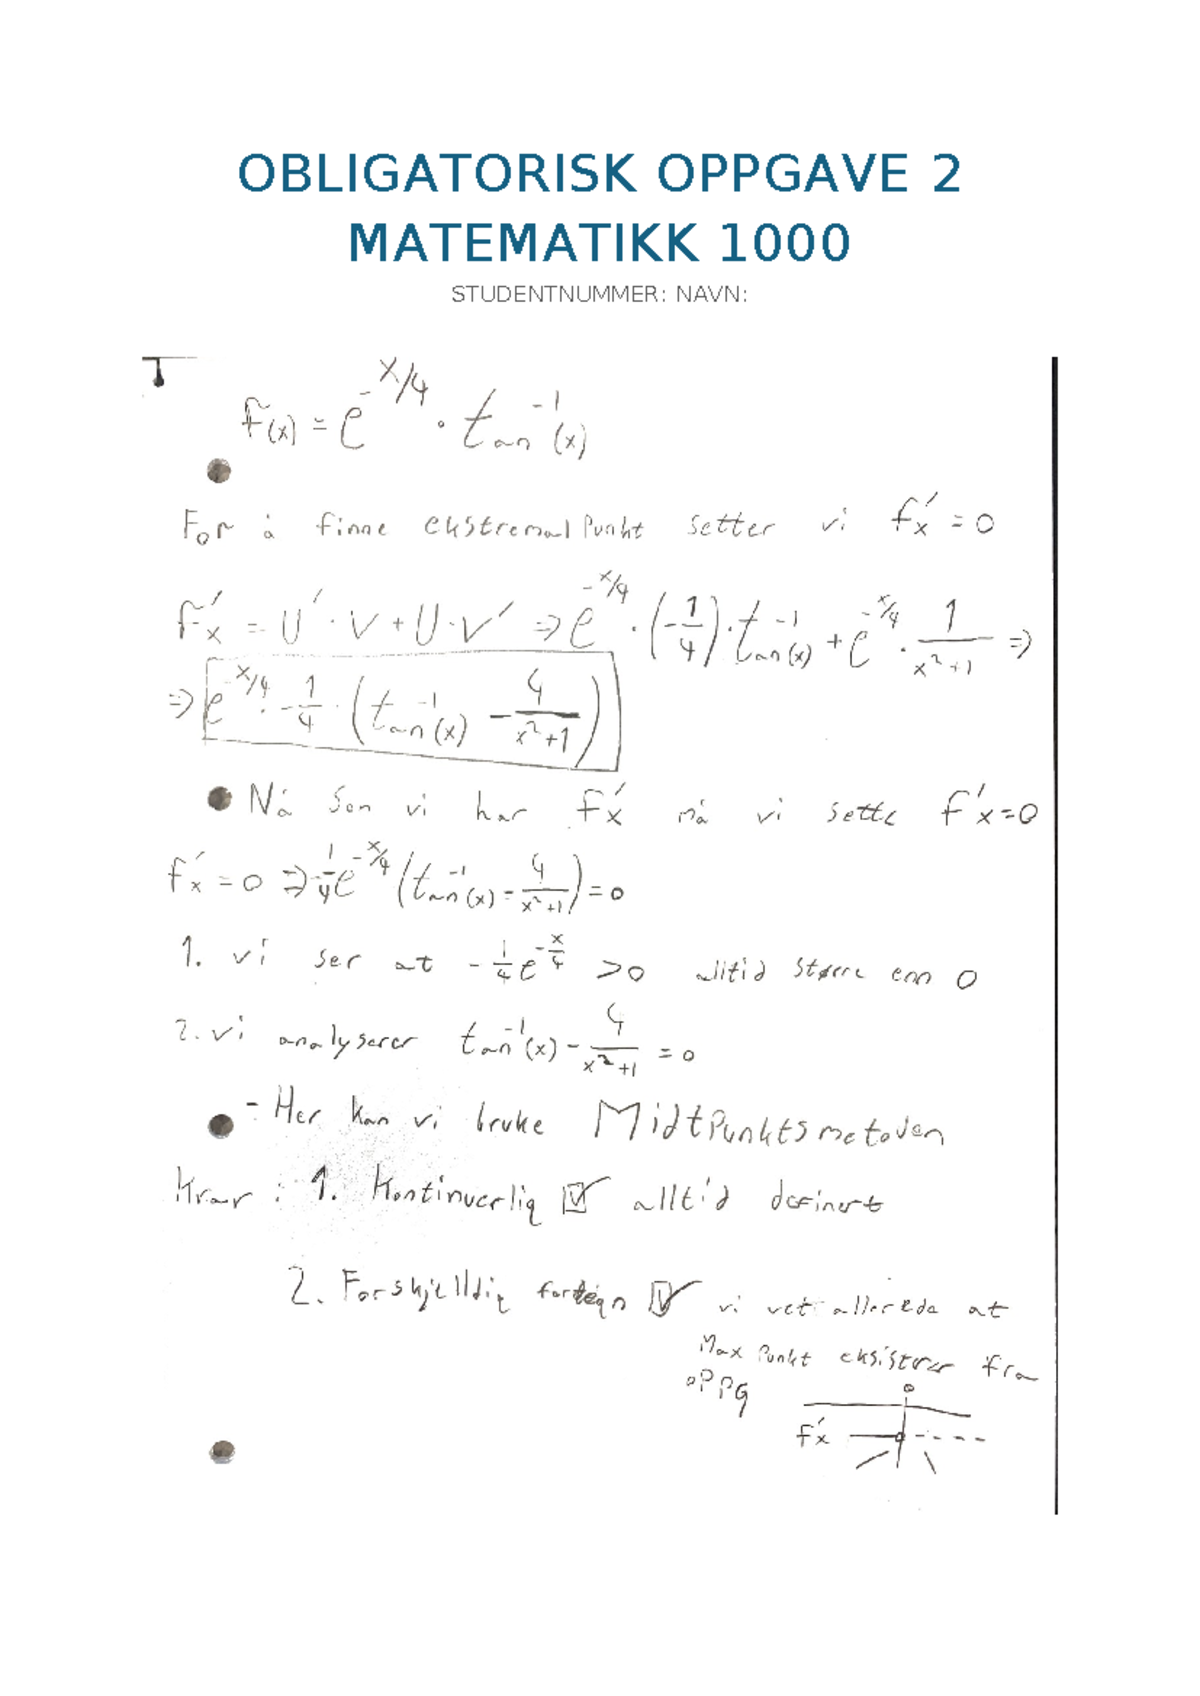 OBLIGATORISK OPPGAVE 2
MATEMATIKK 1000
STUDENTNUMMER: NAVN:
f(x) = e^{-x/4} · tan^{-1}(x)
For å finne ekstremalpunkt setter vi f'x = 0
f'x = U' · V + U · V' => e^{-x/4} · (-1/4) · tan^{-1}(x) + e^{-x/4} · 1/(x²+1) =>
=> e^{-x/4} · -1/4 · (tan^{-1}(x) - 4/(x²+1))
Nå son vi har f'x må vi sette f'x=0
f'x = 0 => -1/4 e^{-x/4} (tan^{-1}(x) - 4/(x²+1)) = 0
1. vi ser at -1/4 e^{-x/4} >0 alltid større enn 0
2. vi analyserer tan^{-1}(x) - 4/(x²+1) = 0
- Her kan vi bruke Midtpunktsmetoden
Krav : 1. Kontinuerlig ☑ alltid definert
2. Forskjelldig fortegn ☑ vi vet allerede at
Max Punkt eksisterer fra
oppg
0
f'x 0